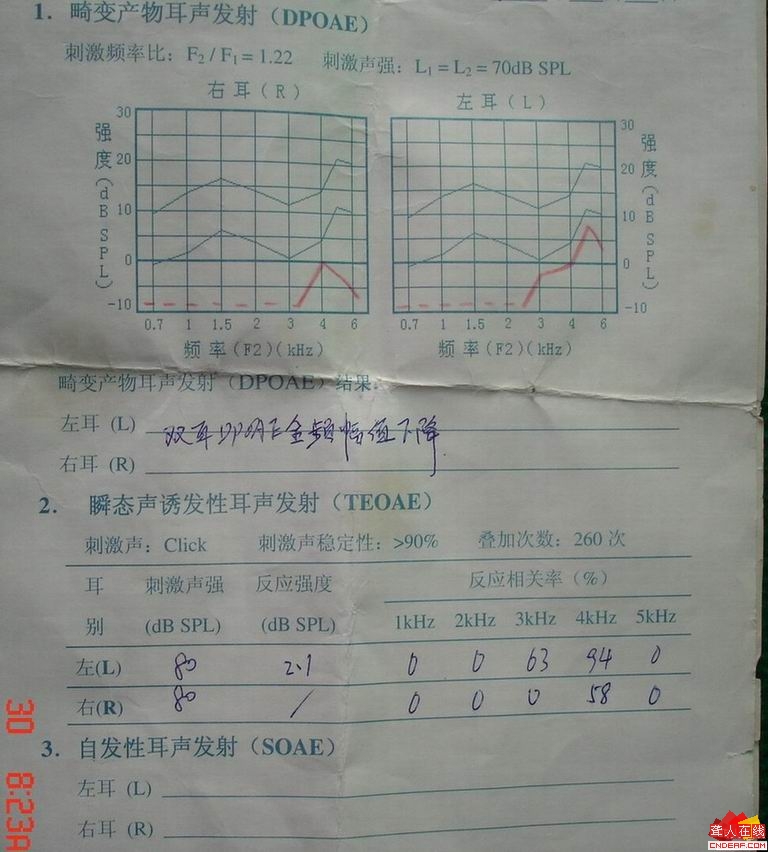 1. 畸变产物耳声发射（DPOAE）
刺激频率比：F2 / F1 = 1.22 刺激声强：L1 = L2 = 70dB SPL
右耳(R) 左耳(L)
强度(dB SPL)
30
20
10
0
-10
0.7 1 1.5 2 3 4 6
频率(F2)(kHz)
强度(dB SPL)
30
20
10
0
-10
0.7 1 1.5 2 3 4 6
频率(F2)(kHz)
畸变产物耳声发射（DPOAE）结果：
左耳 (L) 双耳DPOAE全频幅值下降
右耳 (R)
2. 瞬态声诱发性耳声发射（TEOAE）
刺激声：Click 刺激声稳定性：>90% 叠加次数：260 次
耳别 刺激声强 (dB SPL) 反应强度 (dB SPL) 反应相关率（%）
1kHz 2kHz 3kHz 4kHz 5kHz
左(L) 80 2.1 0 0 63 94 0
右(R) 80 / 0 0 0 58 0
3. 自发性耳声发射（SOAE）
左耳 (L)
右耳 (R)
30 8:23A
聋人在线
CNDEAF.COM